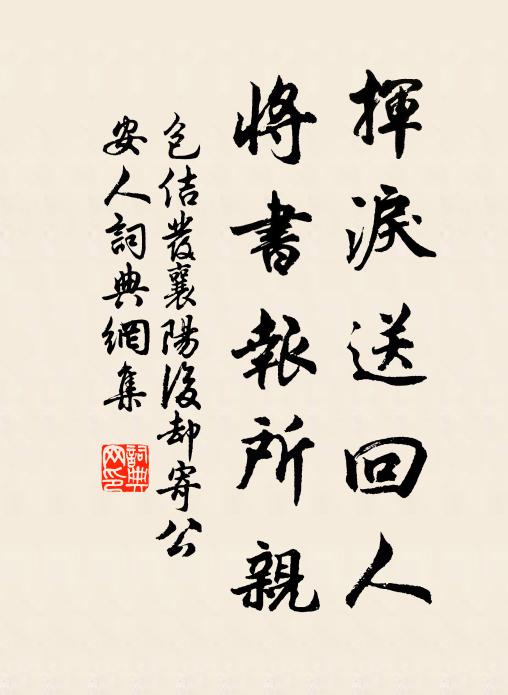 揮淚送回人
將書報所親
包佶發襄陽後却寄公
安人詞典網集
詞典
网印